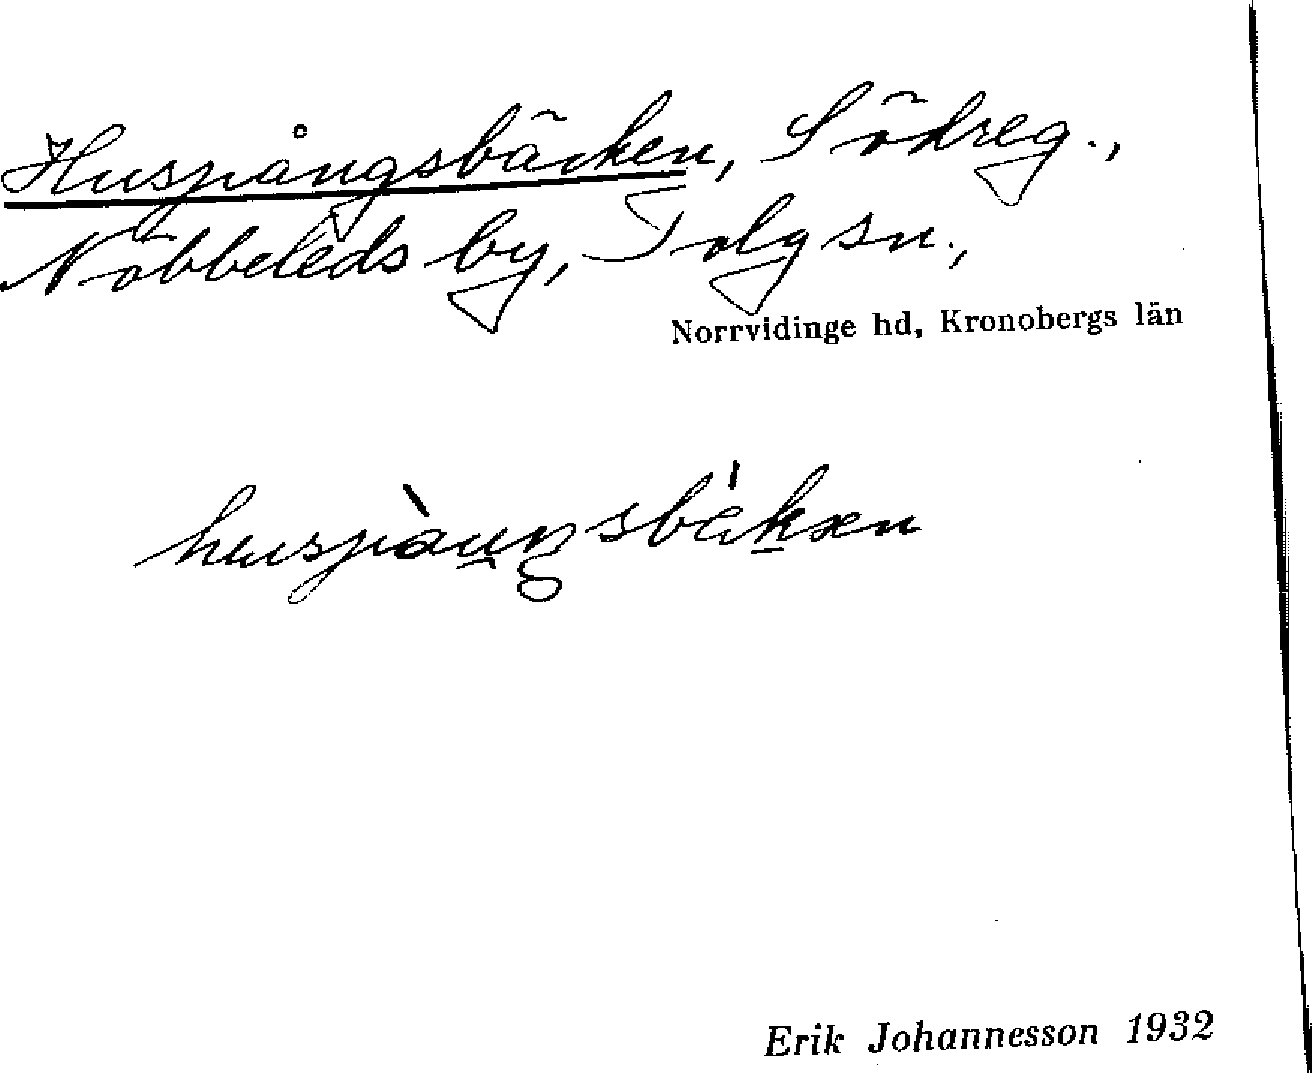 Huspångsbäcken, Södreg.,
Nöbbeleds by, Tolg sn.,
Norrvidinge hd, Kronobergs län
huspàu̯ŋsbɛ́kxn
Erik Johannesson 1932